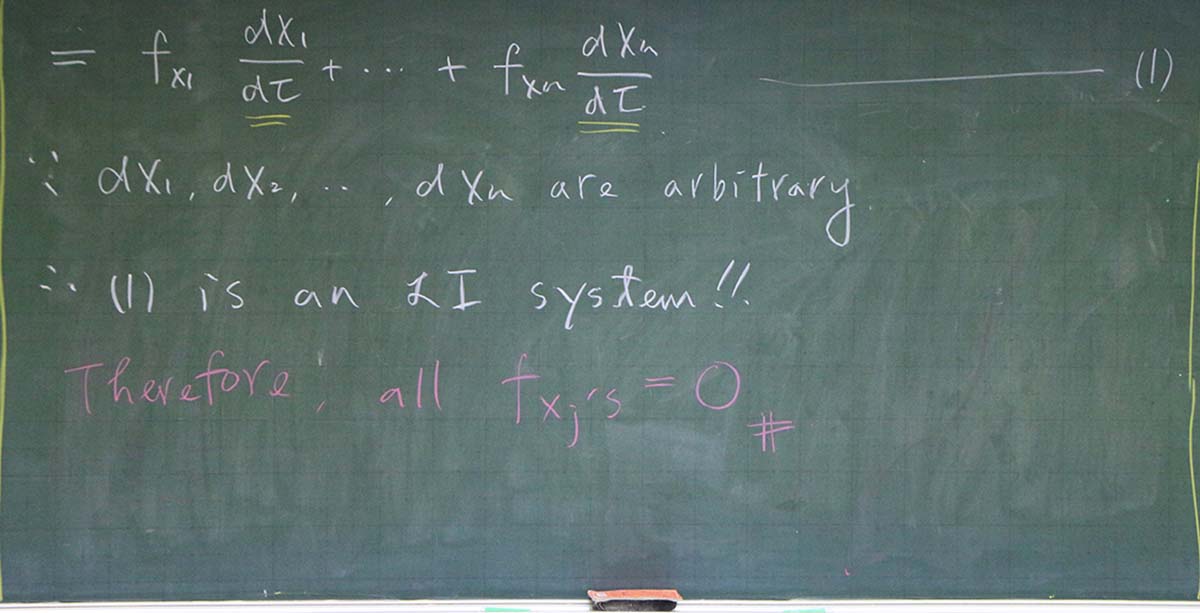 = f_{x_1} \frac{dx_1}{dτ} + ... + f_{x_n} \frac{dx_n}{dτ} ———— (1)
∵ dx_1, dx_2, .., dx_n are arbitrary.
∴ (1) is an LI system!!
Therefore, all f_{x_j}'s = 0 #